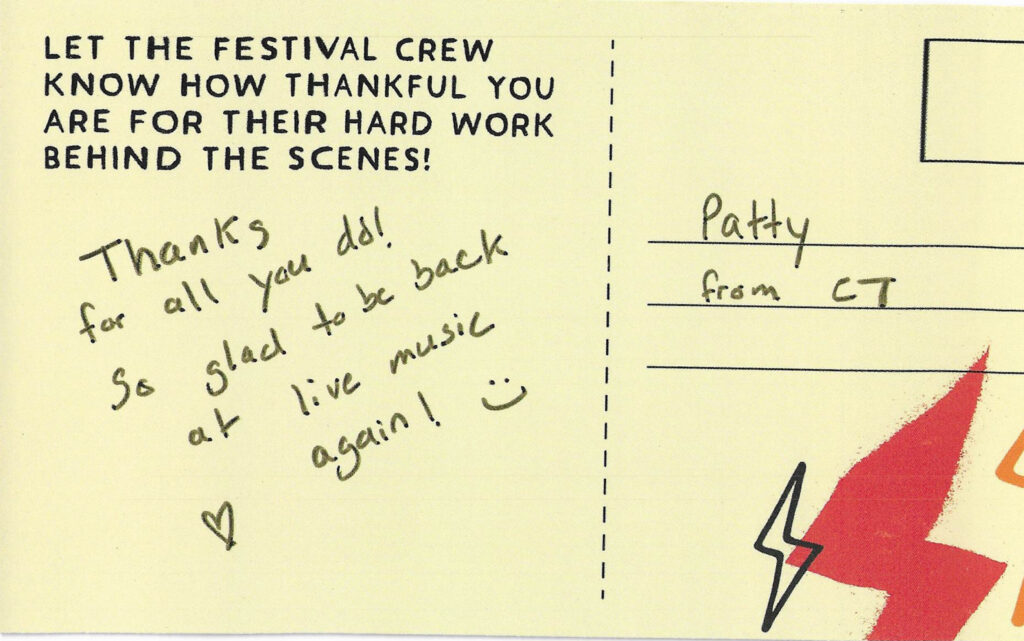 LET THE FESTIVAL CREW
KNOW HOW THANKFUL YOU
ARE FOR THEIR HARD WORK
BEHIND THE SCENES!
Thanks
for all you do!
So glad to be back
at live music
again! :)
♡
Patty
from CT